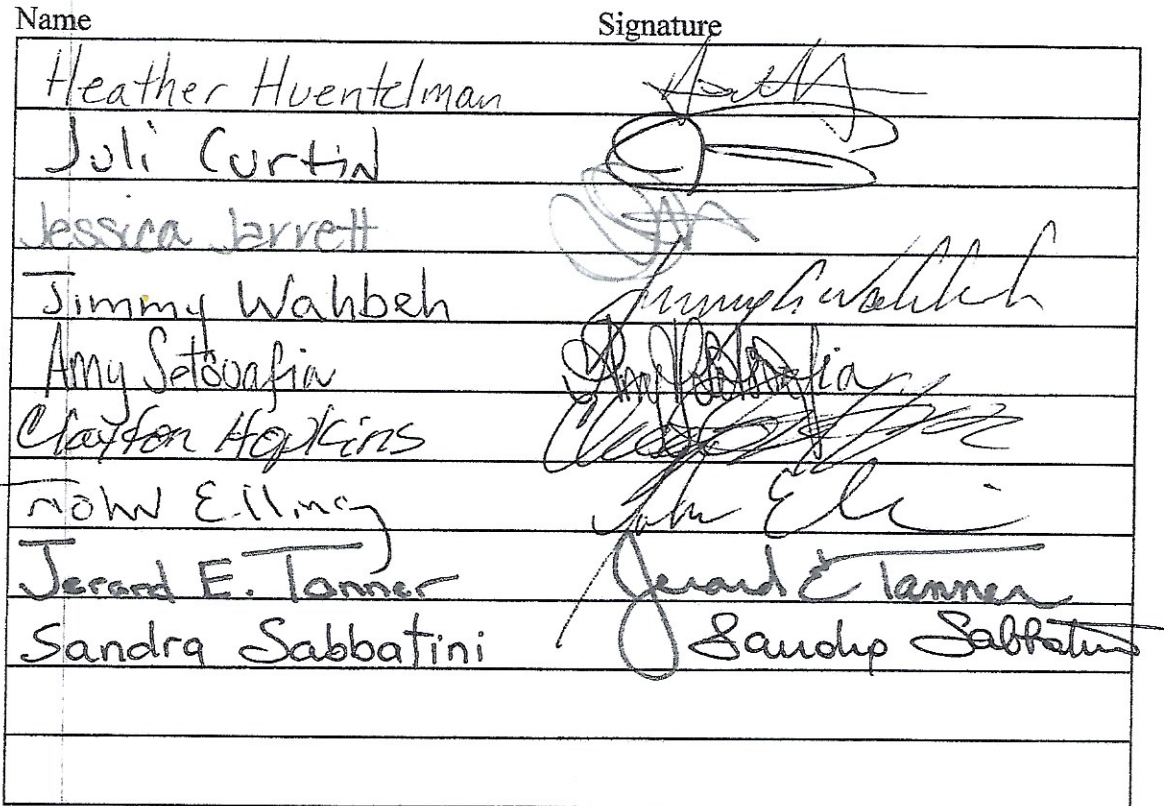 Name Signature
Heather Huentelman
Juli Curtin
Jessica Jarrett
Jimmy Wahbeh
Amy Setsuafia
Clayton Hopkins
John Elling John
Jerard E. Tanner Jerard E Tanner
Sandra Sabbatini Sandra Sabbatini